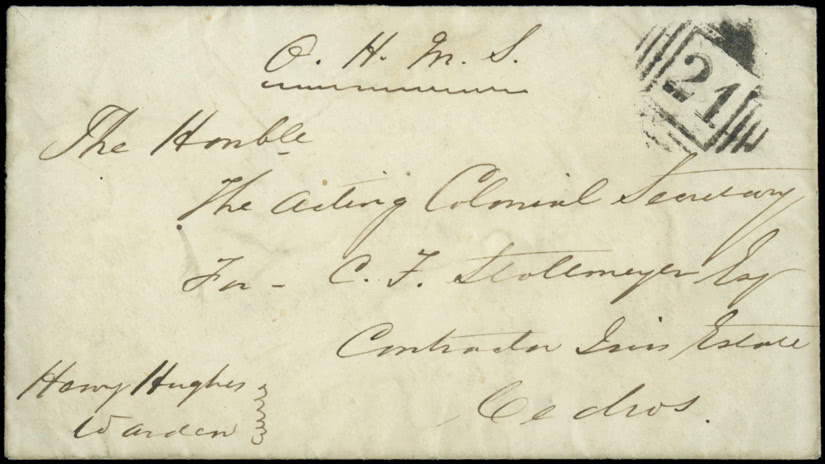 O. H. M. S.
21
The Honble
The Acting Colonial Secretary
For - C. F. Stollmeyer Esq
Contractor Irois Estate
Cedros.
Harry Hughes
Warden